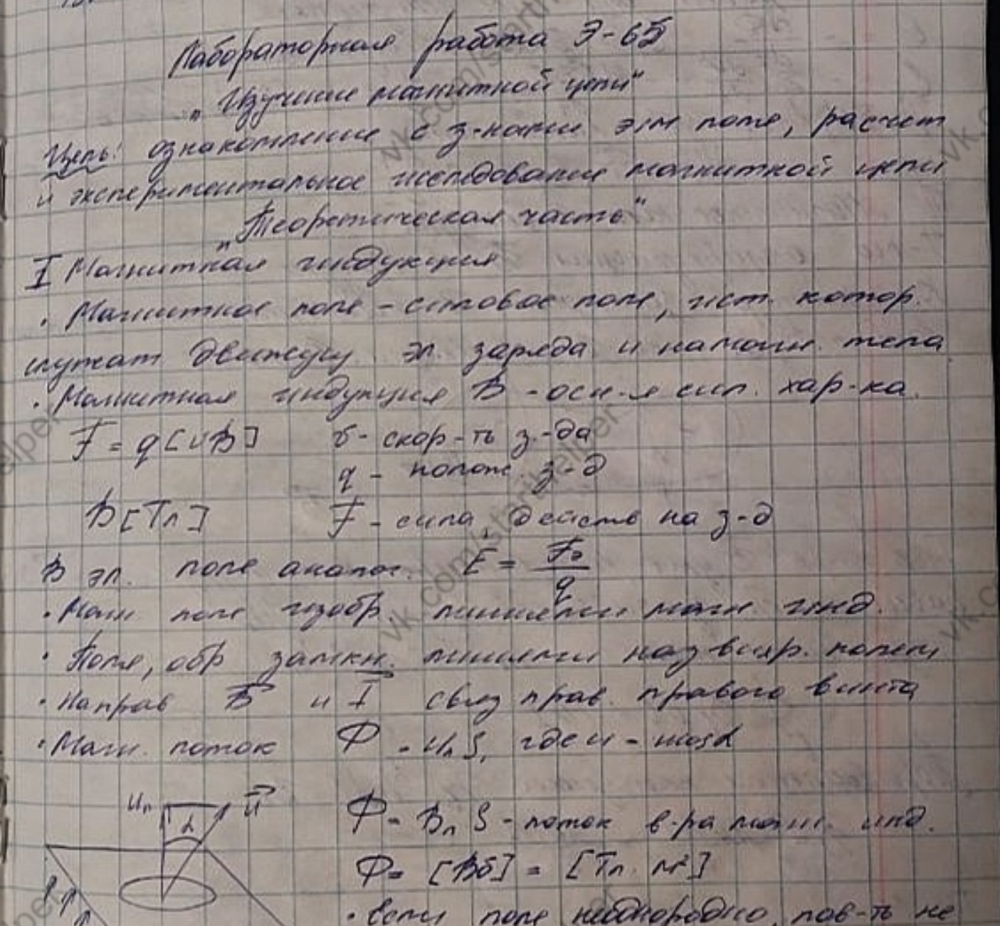 Лабораторная работа Э-65
„Изучение магнитной цепи"
Цель: ознакомление с з-нами элм поля, расчет
и экспериментальное исследование магнитной цепи
„Теоретическая часть"
I Магнитная индукция
· Магнитное поле - силовое поле, ист. котор.
служат движущ. эл. заряда и намагн. тела
· Магнитная индукция B - осн-я сил. хар-ка.
F = q[υB] υ - скор-ть з-да
q - полож. з-д
B[Тл] F - сила действ на з-д
В эл. поле аналог. E = Fэ/q
· Магн поле изобр. линиями магн инд.
· Поля, обр замкн. линиями наз вихр. полем
· Направ B и I связ прав. правого винта
· Магн. поток Ф = uₙS, где u - u cosα
uₙ α u
Ф = Bₙ S - поток в-ра магн. инд.
Ф = [Вб] = [Тл · м²]
· если поле неоднородно, пов-ть не
vk.com/